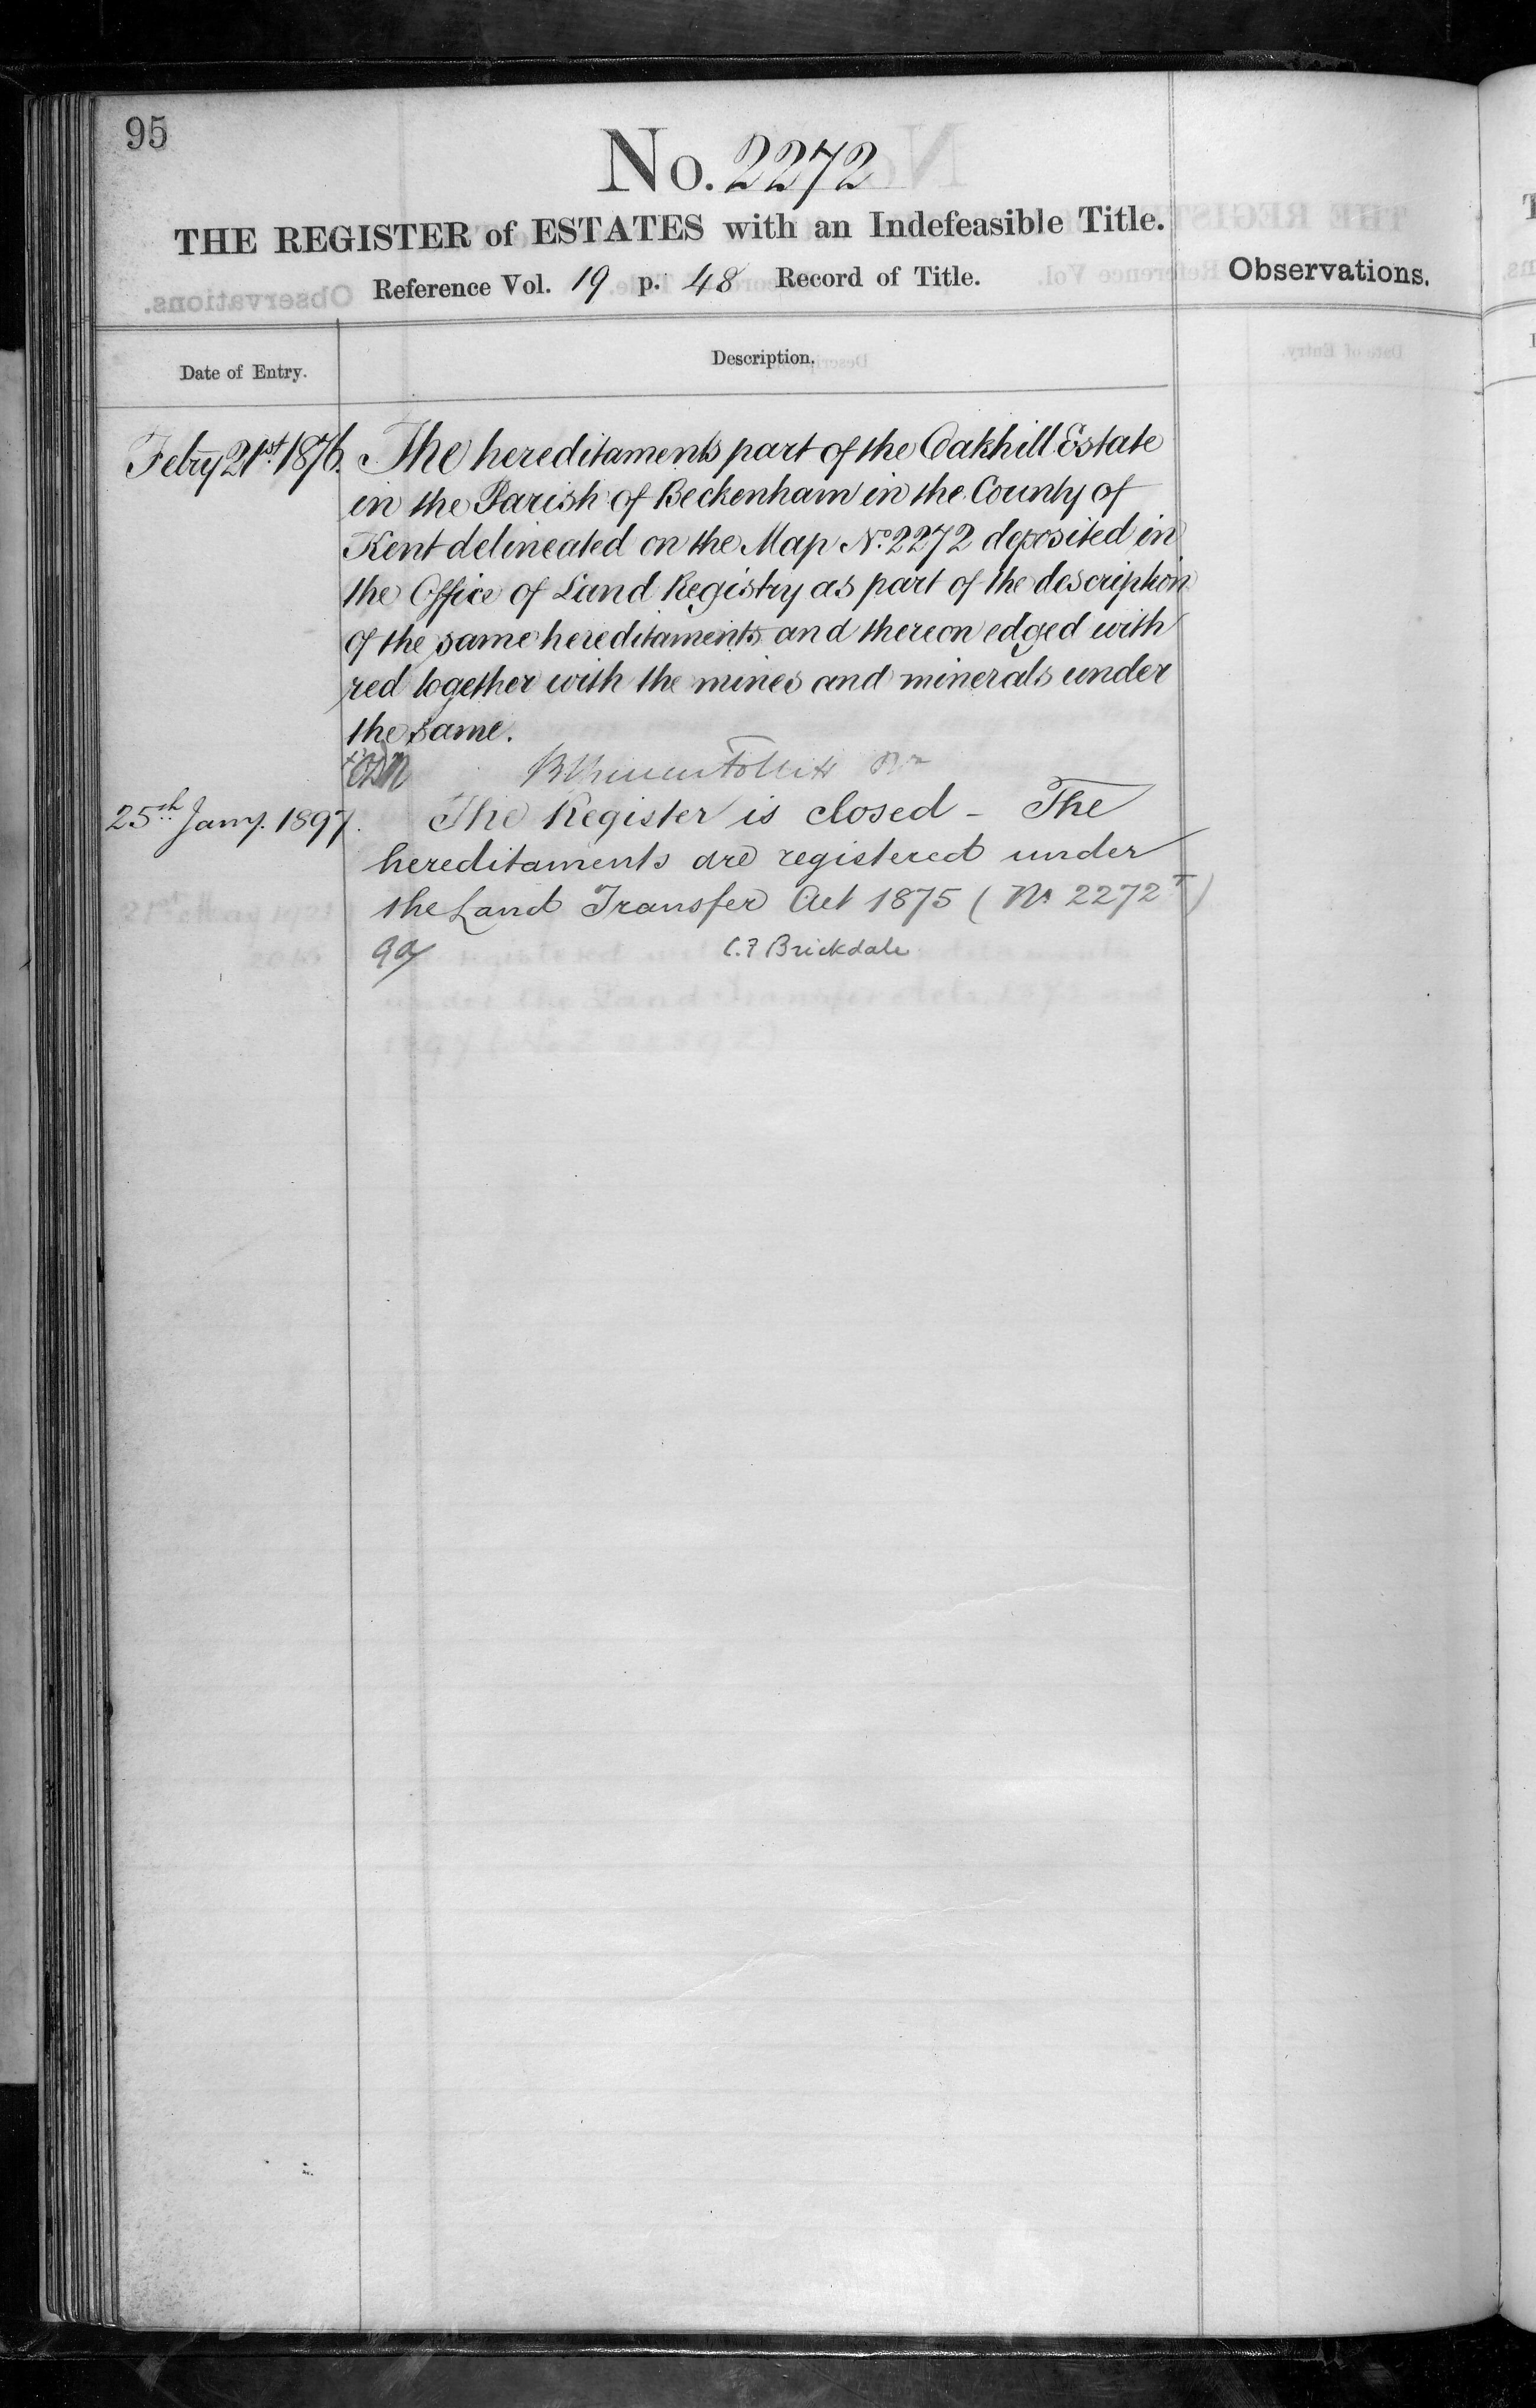 95
No. 2272
THE REGISTER of ESTATES with an Indefeasible Title.
Reference Vol. 19 p. 48 Record of Title.
Observations.
Date of Entry.
Description.
Febry 21st 1876. The hereditaments part of the Oakhill Estate
in the Parish of Beckenham in the County of
Kent delineated on the Map No. 2272 deposited in
the Office of Land Registry as part of the description
of the same hereditaments and thereon edged with
red together with the mines and minerals under
the same.
25th Jany. 1897. The Register is closed - The
hereditaments are registered under
the Land Transfer Act 1875 (No 2272T)
C.F Brickdale